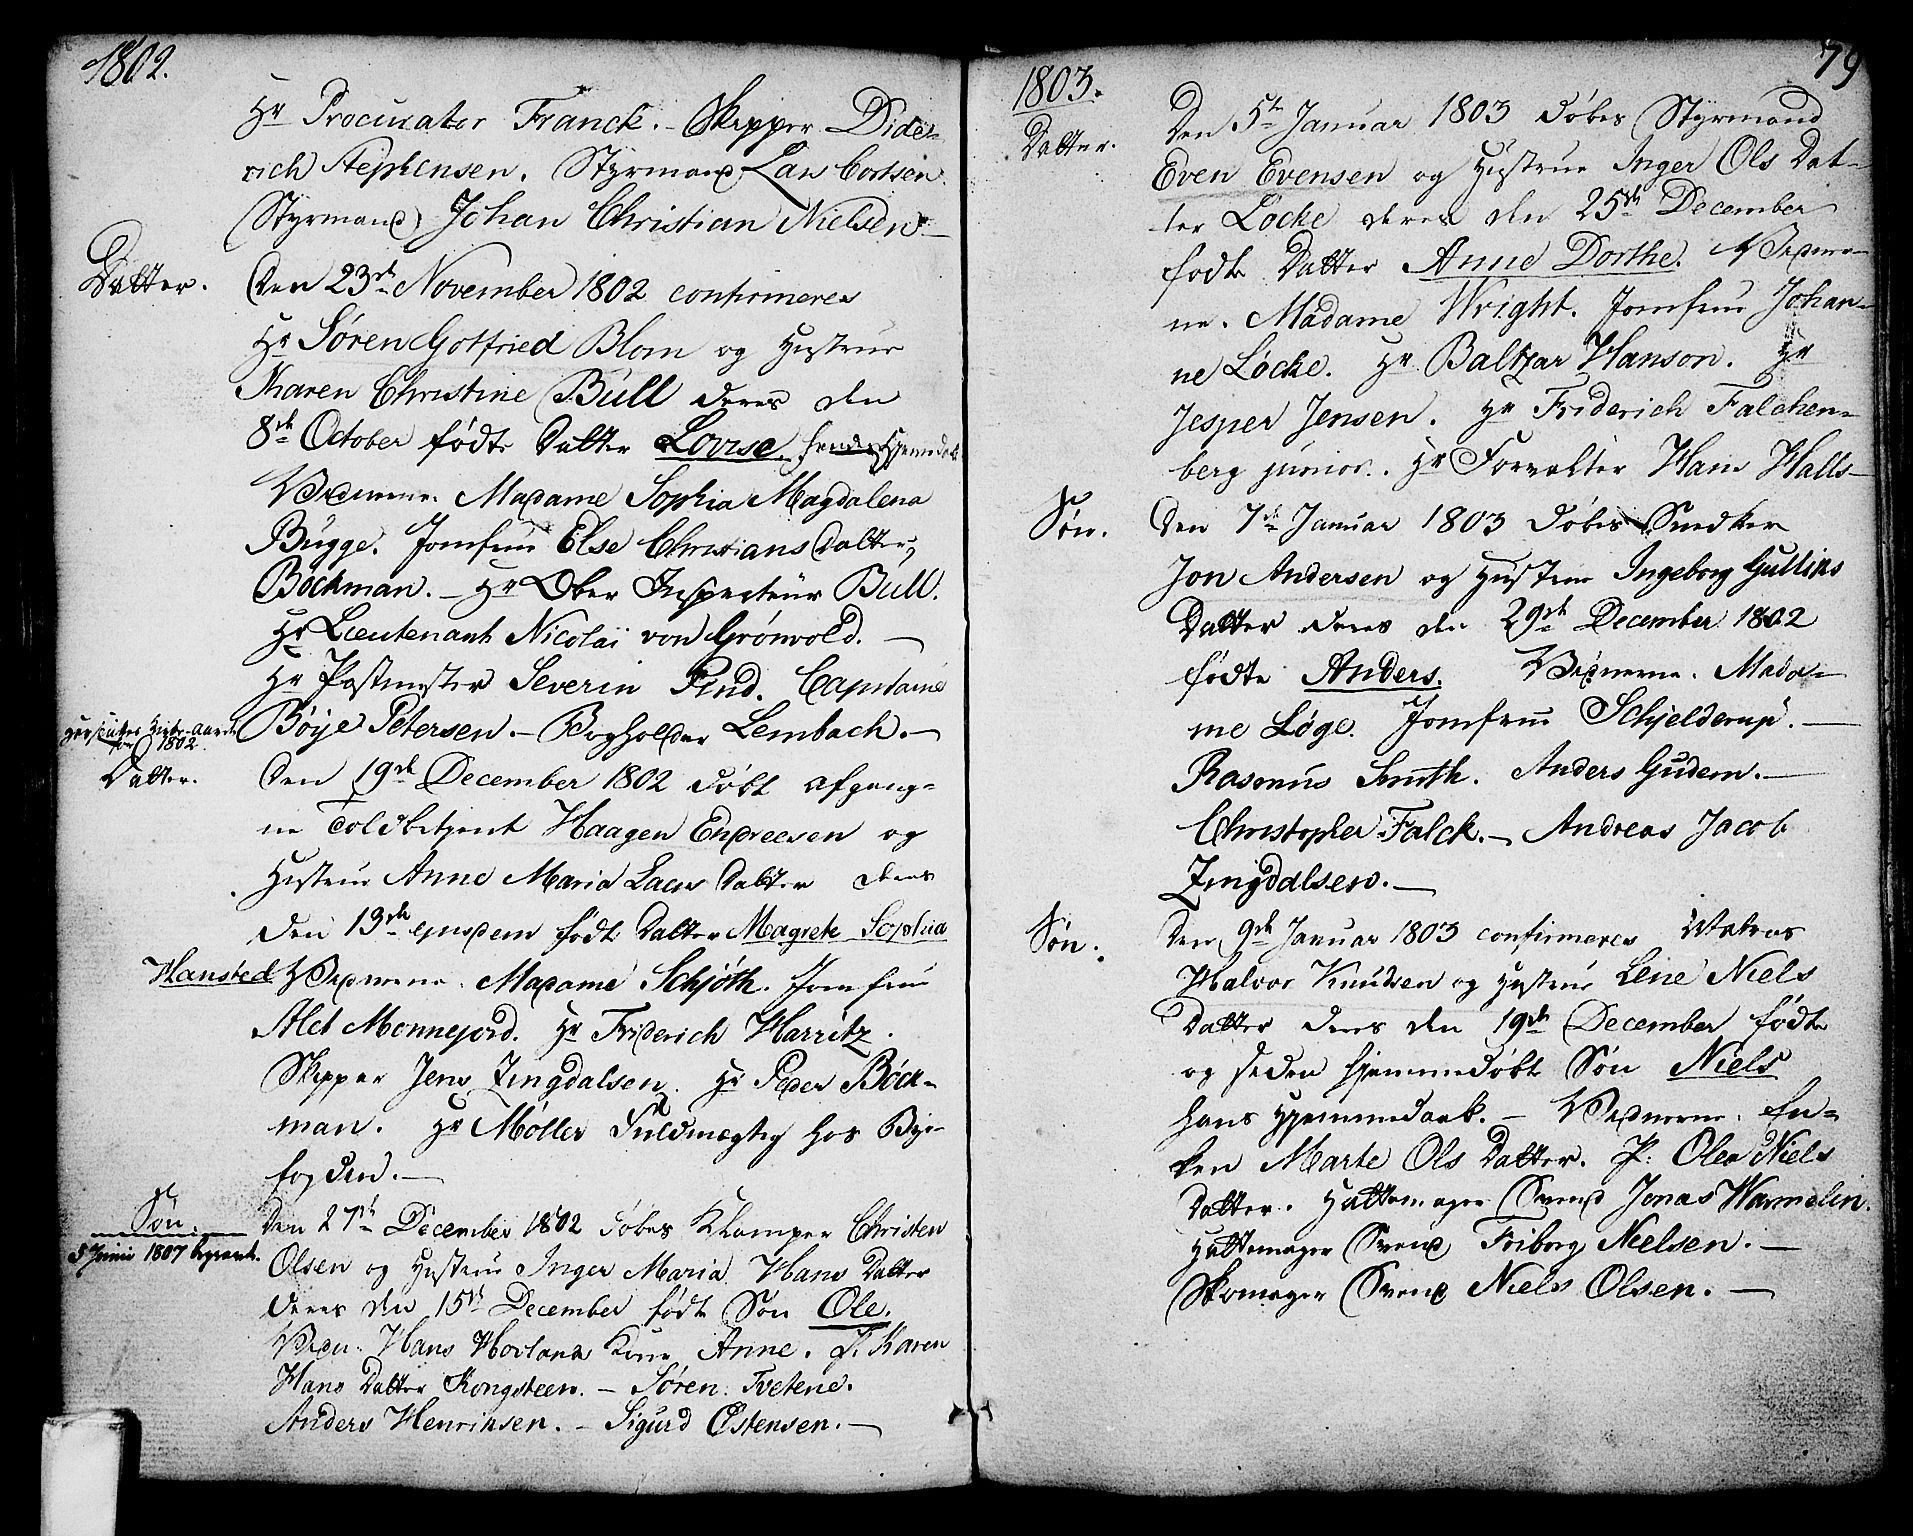 1802.
Hr Procurator Franck. - Skipper Dide-
rich Stephensen. Styrmand Lars Cortsen
Styrmand Johan Christian Nielsen. -
Datter.
Den 23de November 1802 confirmeres
Hr Søren Gotfried Blom og Hustrue
Karen Christine Bull deres den
8de October født Datter Lovise. hendes Hjemdaab
Vidnerne. Madame Sophia Magdalena
Bugge. Jomfrue Else Christians Datter
Böckman. - Hr Ober Inspecteur Bull.
Hr Lieutenant Nicolai von Grönvold. -
Hr Postmester Severin Pind. Capitaine
Böye Petersen. - Bogholder Lembach. -
1802.
Datter.
Den 19de December 1802 döbt afgang-
ne Toldbetjent Haagen Endresen og
Hustrue Anne Maria Lars Datter deres
den 13de ejusdem født Datter Magrete Sophia
Hansted Vidnerne. Madame Schjöth. Jomfrue
Alet Monnejord. Hr Friderich Harritz.
Skipper Jens Zingdalsen. Hr Peder Böck-
man. Hr Möller Fuldmægtig hos Bye-
fogden. -
Søn.
5 Junii 1807 begravet.
Den 27de December 1802 döbes Klamper Christen
Olsen og Hustrue Inger Maria Hans Datter
deres den 15de December født Søn Ole.
Vidn: Hans Hovlands Kone Anne. P. Karen
Hans Datter Kongsteen. - Søren Tvetene.
Anders Henriksen. - Sigurd Østensen. -
79
1803.
Datter.
Den 5te Januar 1803 döbes Styrmand
Even Evensen og Hustrue Inger Ols Dat-
ter Locke deres den 25de December
født Datter Anne Dorthe. Vidner-
ne. Madame Wright. Jomfrue Johan-
ne Løcke. Hr Baltzar Hanson. Hr
Jesper Jensen. Hr Friderich Falchen-
berg junior. Hr Forvalter Hans Halls-
Søn.
Den 7de Januar 1803 döbes Snedker
Jon Andersen og Hustrue Ingeborg Gulliks
Datter deres den 29de December 1802
født Anders. Vidnerne. Mada-
me Løge. Jomfrue Schjelderup. -
Rasmus Smith. Anders Gudem. -
Christopher Falck. - Andreas Jacob
Zingdalsen. -
Søn.
Den 9de Januar 1803 confirmeres Matros
Halvor Knudsen og Hustrue Lene Niels
Datter deres den 19de December født
og siden hjemmedöbt Søn Niels
hans Hjemmedaab. - Vidnerne. En-
ken Marte Ols Datter. P: Olea Niels
Datter. Hattemager Svend Jonas Warmelin.
Hattemager Svend Friborg Nielsen. -
Skomager Svend Niels Olsen. -